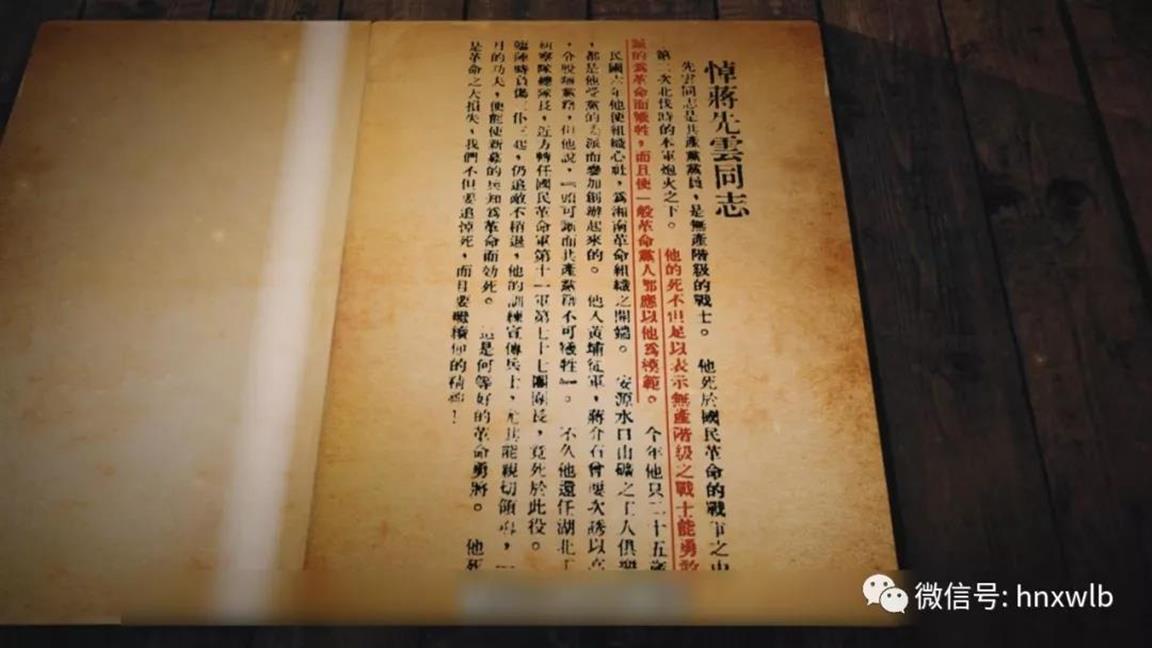 悼蔣先雲同志
先雲同志是共產黨黨員，是無產階級的戰士。 他死於國民革命的戰爭之中
第二次北伐時的本軍炮火之下。 他的死不但足以表示無產階級之戰士能勇敢
的爲革命而犧牲，而且使一般革命黨人都應以他爲模範。 今年他只二十五歲
民國六年他便組織心社，爲湘南革命組織之開端。 安源水口山礦之工人俱樂
，都是他受黨的委派而參加創辦起來的。 他入黃埔從軍，蔣介石曾屢次誘以高
，令脫離黨籍，但他說，『頭可斷而共產黨籍不可犧牲』。 不久他還任湖北工
糾察隊總隊長，近方轉任國民革命軍第十一軍第七十七團團長，竟死於此役。
臨陣時負傷三仆三起，仍追敵不稍退，他的訓練宣傳兵士，尤其能親切領導，一
月的功夫，便能使新募的兵知爲革命而效死。 這是何等好的革命勇將。 他死
是革命之大損失，我們不但要追悼死，而且要繼續他的精神！
微信号: hnxwlb